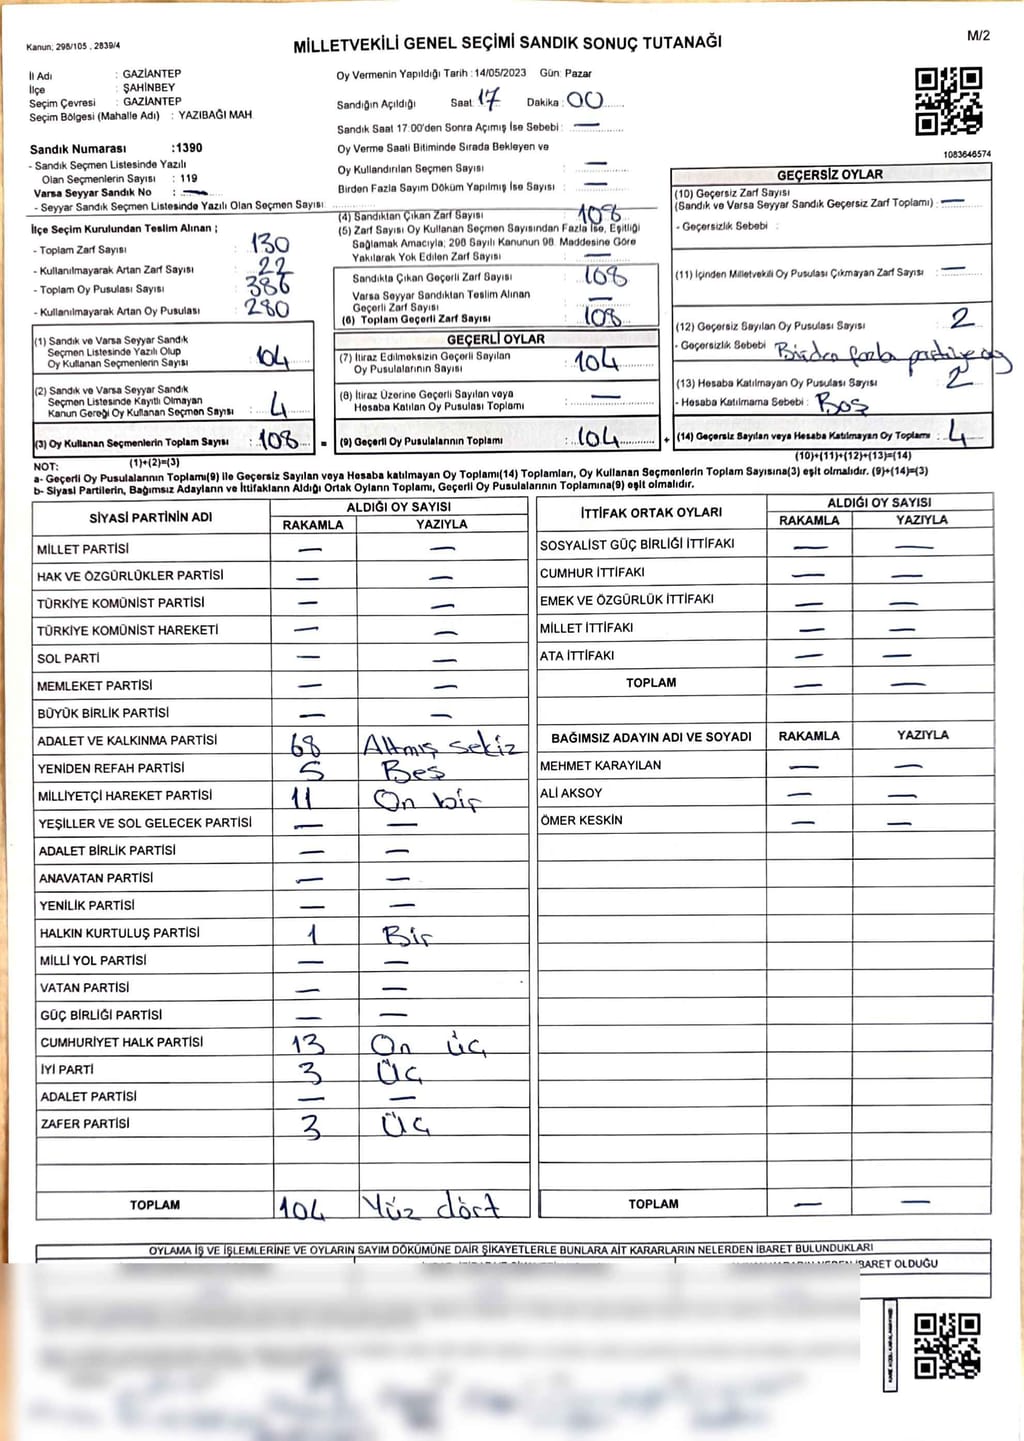 Kanun; 298/105 , 2839/4
MİLLETVEKİLİ GENEL SEÇİMİ SANDIK SONUÇ TUTANAĞI
M/2
İl Adı : GAZİANTEP
İlçe : ŞAHİNBEY
Seçim Çevresi : GAZİANTEP
Seçim Bölgesi (Mahalle Adı) : YAZIBAĞI MAH
Sandık Numarası :1390
- Sandık Seçmen Listesinde Yazılı
Olan Seçmenlerin Sayısı : 119
Varsa Seyyar Sandık No : —
- Seyyar Sandık Seçmen Listesinde Yazılı Olan Seçmen Sayısı:
İlçe Seçim Kurulundan Teslim Alınan ;
- Toplam Zarf Sayısı : 130
- Kullanılmayarak Artan Zarf Sayısı : 22
- Toplam Oy Pusulası Sayısı : 386
- Kullanılmayarak Artan Oy Pusulası : 280
(1) Sandık ve Varsa Seyyar Sandık
Seçmen Listesinde Yazılı Olup
Oy Kullanan Seçmenlerin Sayısı : 104
(2) Sandık ve Varsa Seyyar Sandık
Seçmen Listesinde Kayıtlı Olmayan
Kanun Gereği Oy Kullanan Seçmen Sayısı : 4
(3) Oy Kullanan Seçmenlerin Toplam Sayısı : 108
(1)+(2)=(3)
Oy Vermenin Yapıldığı Tarih : 14/05/2023 Gün: Pazar
Sandığın Açıldığı Saat: 17 Dakika : 00
Sandık Saat 17:00'den Sonra Açımış İse Sebebi : —
Oy Verme Saati Bitiminde Sırada Bekleyen ve
Oy Kullandırılan Seçmen Sayısı : —
Birden Fazla Sayım Döküm Yapılmış İse Sayısı : —
(4) Sandıktan Çıkan Zarf Sayısı : 108
(5) Zarf Sayısı Oy Kullanan Seçmen Sayısından Fazla İse, Eşitliği
Sağlamak Amacıyla; 298 Sayılı Kanunun 98. Maddesine Göre
Yakılarak Yok Edilen Zarf Sayısı : —
Sandıkta Çıkan Geçerli Zarf Sayısı : 108
Varsa Seyyar Sandıktan Teslim Alınan
Geçerli Zarf Sayısı : —
(6) Toplam Geçerli Zarf Sayısı : 108
GEÇERLİ OYLAR
(7) İtiraz Edilmeksizin Geçerli Sayılan
Oy Pusulalarının Sayısı : 104
(8) İtiraz Üzerine Geçerli Sayılan veya
Hesaba Katılan Oy Pusulası Toplamı : —
= (9) Geçerli Oy Pusulalarının Toplamı : 104
1083646574
GEÇERSİZ OYLAR
(10) Geçersiz Zarf Sayısı
(Sandık ve Varsa Seyyar Sandık Geçersiz Zarf Toplamı) : —
- Geçersizlik Sebebi :
(11) İçinden Milletvekili Oy Pusulası Çıkmayan Zarf Sayısı : —
(12) Geçersiz Sayılan Oy Pusulası Sayısı : 2
- Geçersizlik Sebebi : Birden fazla partiye oy
(13) Hesaba Katılmayan Oy Pusulası Sayısı : 2
- Hesaba Katılmama Sebebi : Boş
+ (14) Geçersiz Sayılan veya Hesaba Katılmayan Oy Toplamı : 4
(10)+(11)+(12)+(13)=(14)
NOT:
a- Geçerli Oy Pusulalarının Toplamı(9) ile Geçersiz Sayılan veya Hesaba katılmayan Oy Toplamı(14) Toplamları, Oy Kullanan Seçmenlerin Toplam Sayısına(3) eşit olmalıdır. (9)+(14)=(3)
b- Siyasi Partilerin, Bağımsız Adayların ve İttifakların Aldığı Ortak Oyların Toplamı, Geçerli Oy Pusulalarının Toplamına(9) eşit olmalıdır.
SİYASİ PARTİNİN ADI ALDIĞI OY SAYISI
RAKAMLA YAZIYLA
MİLLET PARTİSİ — —
HAK VE ÖZGÜRLÜKLER PARTİSİ — —
TÜRKİYE KOMÜNİST PARTİSİ — —
TÜRKİYE KOMÜNİST HAREKETİ — —
SOL PARTİ — —
MEMLEKET PARTİSİ — —
BÜYÜK BİRLİK PARTİSİ — —
ADALET VE KALKINMA PARTİSİ 68 Altmış sekiz
YENİDEN REFAH PARTİSİ 5 Beş
MİLLİYETÇİ HAREKET PARTİSİ 11 On bir
YEŞİLLER VE SOL GELECEK PARTİSİ — —
ADALET BİRLİK PARTİSİ — —
ANAVATAN PARTİSİ — —
YENİLİK PARTİSİ — —
HALKIN KURTULUŞ PARTİSİ 1 Bir
MİLLİ YOL PARTİSİ — —
VATAN PARTİSİ — —
GÜÇ BİRLİĞİ PARTİSİ — —
CUMHURİYET HALK PARTİSİ 13 On üç
İYİ PARTİ 3 Üç
ADALET PARTİSİ — —
ZAFER PARTİSİ 3 Üç
TOPLAM 104 Yüz dört
İTTİFAK ORTAK OYLARI ALDIĞI OY SAYISI
RAKAMLA YAZIYLA
SOSYALİST GÜÇ BİRLİĞİ İTTİFAKI — —
CUMHUR İTTİFAKI — —
EMEK VE ÖZGÜRLÜK İTTİFAKI — —
MİLLET İTTİFAKI — —
ATA İTTİFAKI — —
TOPLAM — —
BAĞIMSIZ ADAYIN ADI VE SOYADI RAKAMLA YAZIYLA
MEHMET KARAYILAN — —
ALİ AKSOY — —
ÖMER KESKİN — —
TOPLAM — —
OYLAMA İŞ VE İŞLEMLERİNE VE OYLARIN SAYIM DÖKÜMÜNE DAİR ŞİKAYETLERLE BUNLARA AİT KARARLARIN NELERDEN İBARET BULUNDUKLARI
OLDUĞU